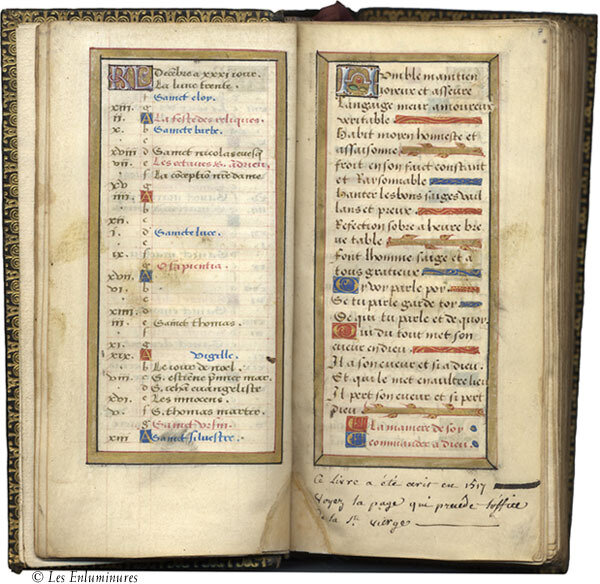 KL Decēbre a xxxi iour.
La lune trente.
f Sainct eloy.
xiii. g
ii. A La feste des reliques.
x. b Saincte barbe.
c
xviii d Sainct nicolas euesq
vii. e Les octaues s. Adrien.
f La cōceptiō nr̄e dame
xv g
iiii. A
b
xii. c
i. d Saincte luce.
e
ix. f
g O sapientia.
xvii. A
vi. b
c
xiiii. d
iii. e Sainct thomas.
f
xi. g
xix. A Vigille.
b Le iour de noel.
viii. c S. estiēne p̄mier mar.
d S. iehā euangeliste
xvi e Les innocens.
v. f S. thomas martir.
g Sainct
xiii A Sainct siluestre.
Humble maintien
ioieux et asseure
Langaige meur amoureux
veritable
Habit moyen honneste et
assaisonne
froit en son faict constant
et Raisonnable
Hanter les bons saiges vail
lans et preux
Refection sobre a heure bre
ue table
font lhomme saige et a
tous gratieux
Or voy parle poy
Se tu parle garde toy
De qui tu parle et de quoy.
Qui du tout met son
cueur en dieu
Il a son cueur et si a dieu.
Et qui le met en aultre lieu
Il pert son cueur et si pert
Dieu
La maniere de soy
commander a dieu.
Ce Livre a été écrit en 1517
voyez la page qui précède l'office
de la Ste vierge
© Les Enluminures